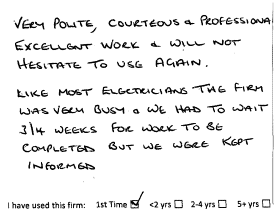 VERY POLITE, COURTEOUS & PROFESSIONA
EXCELLENT WORK & WILL NOT
HESITATE TO USE AGAIN.
LIKE MOST ELECTRICIANS THE FIRM
WAS VERY BUSY & WE HAD TO WAIT
3/4 WEEKS FOR WORK TO BE
COMPLETED BUT WE WERE KEPT
INFORMED
I have used this firm: 1st Time ☑ <2 yrs ☐ 2-4 yrs ☐ 5+ yrs ☐